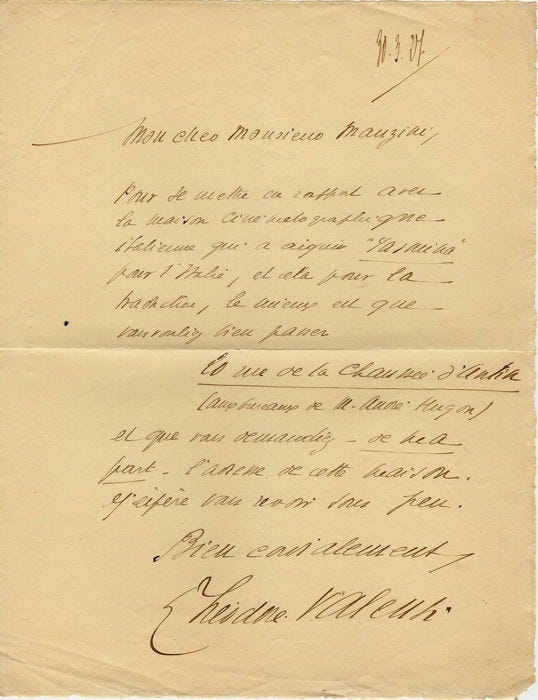 30.3.27
Mon cher Monsieur Manzini,
Pour se mettre en rapport avec
la maison cinématographique
italienne qui a acquis "Yasmina"
pour l'Italie, et cela pour la
traduction, le mieux est que
vous vouliez bien passer
20 rue de la Chaussée d'Antin
(aux bureaux de M. André Hugon)
et que vous demandiez - de ma
part - l'adresse de cette maison.
J'espère vous revoir sous peu.
Bien cordialement,
Théodore Valensi